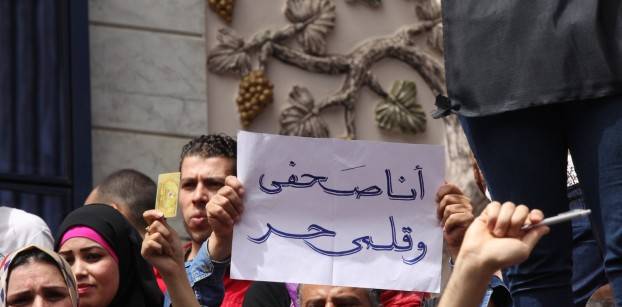 أنا صحفى
وقلمى حر